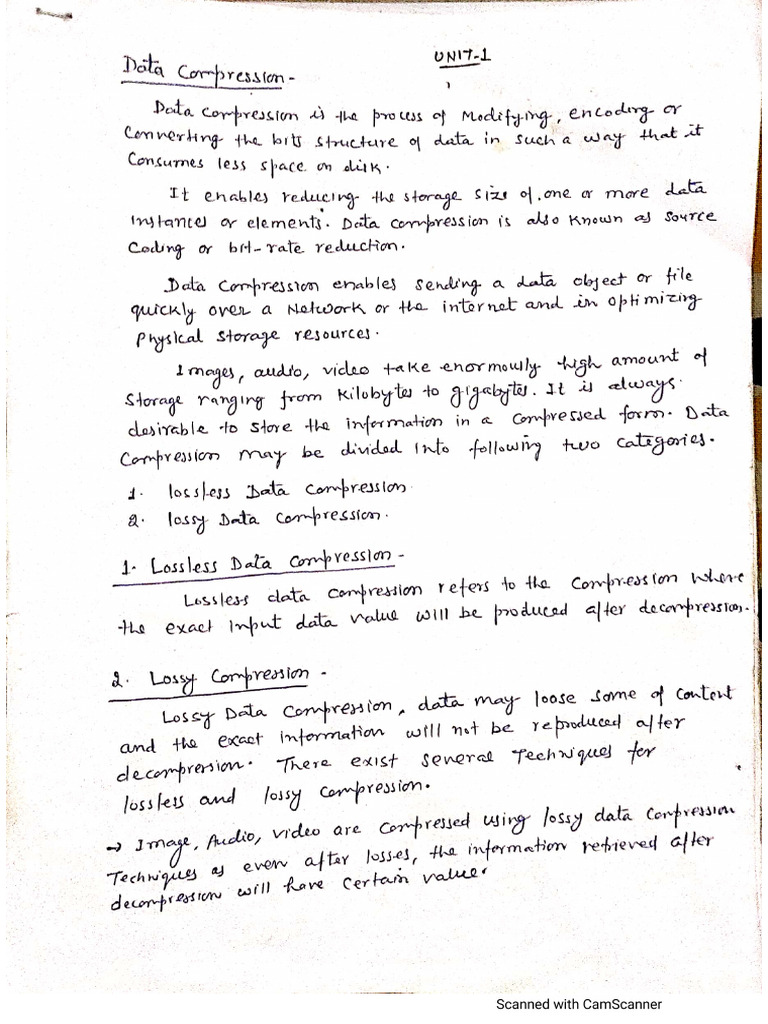 UNIT-1
Data Compression -
Data compression is the process of Modifying, encoding or
Converting the bits structure of data in such a way that it
Consumes less space on disk.
It enables reducing the storage size of one or more data
instances or elements. Data compression is also known as source
Coding or bit-rate reduction.
Data Compression enables sending a data object or file
quickly over a Network or the internet and in optimizing
physical storage resources.
Images, audio, video take enormously high amount of
Storage ranging from Kilobytes to gigabytes. It is always
desirable to store the information in a compressed form. Data
Compression may be divided into following two categories.
1. lossless Data Compression
2. lossy Data Compression.
1. Lossless Data Compression -
Lossless data compression refers to the compression where
the exact input data value will be produced after decompression.
2. Lossy Compression -
Lossy Data Compression, data may loose some of content
and the exact information will not be reproduced after
decompression. There exist several Techniques for
lossless and lossy compression.
→ Image, Audio, video are compressed using lossy data compression
Techniques as even after losses, the information retrieved after
decompression will have certain value.
Scanned with CamScanner